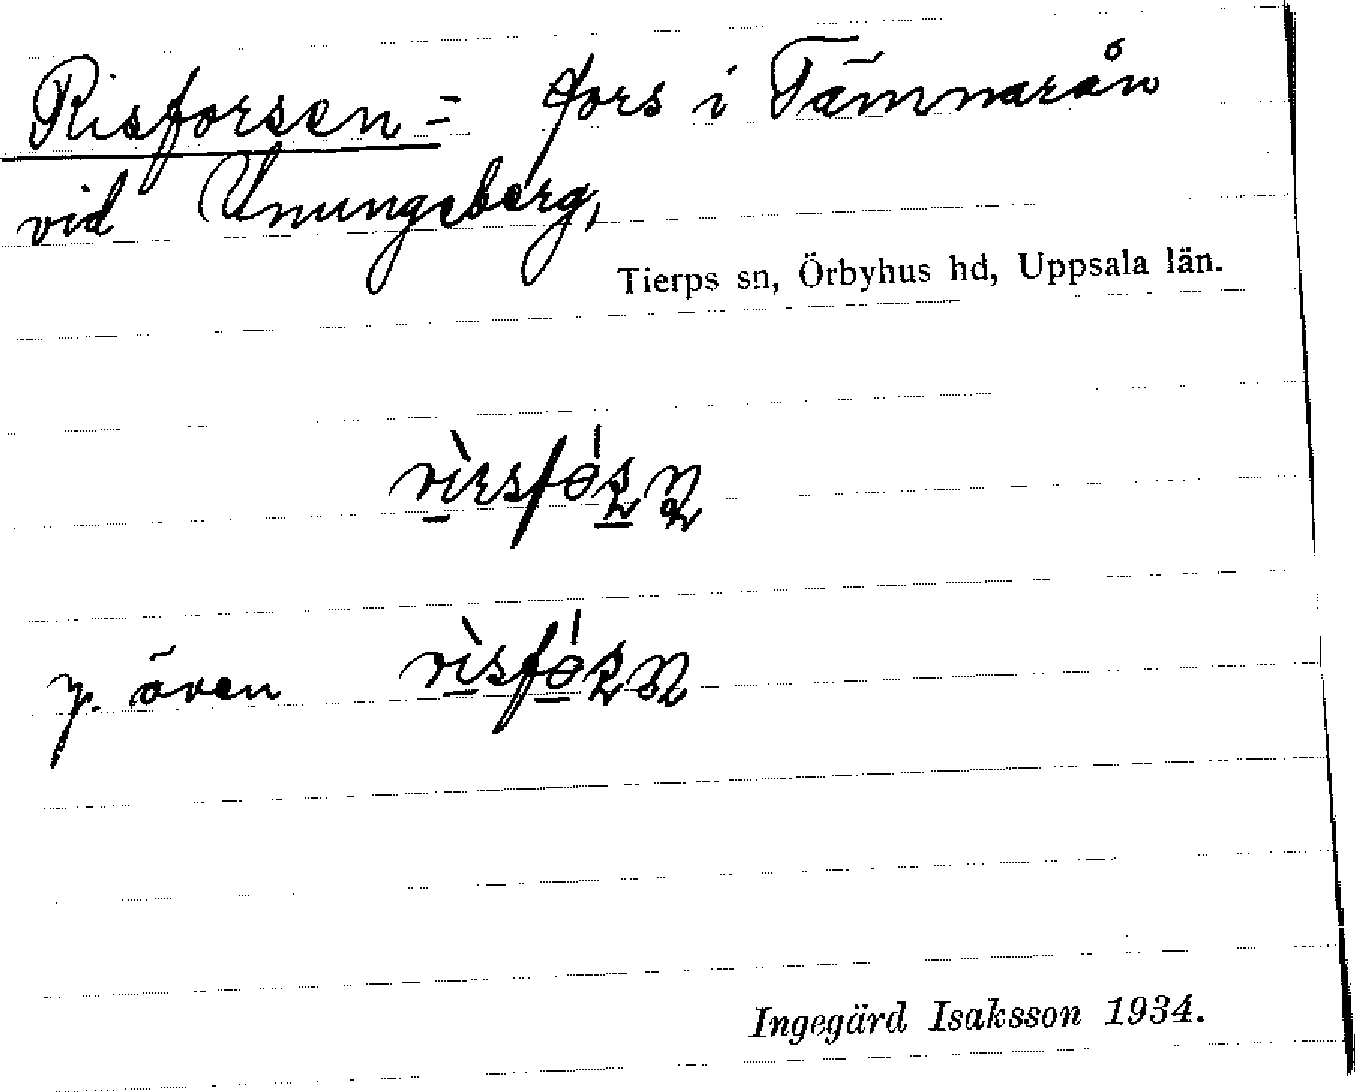 Risforsen = fors i Tämnarån
vid Unungeberg,
Tierps sn, Örbyhus hd, Uppsala län.
y. även
Ingegärd Isaksson 1934.